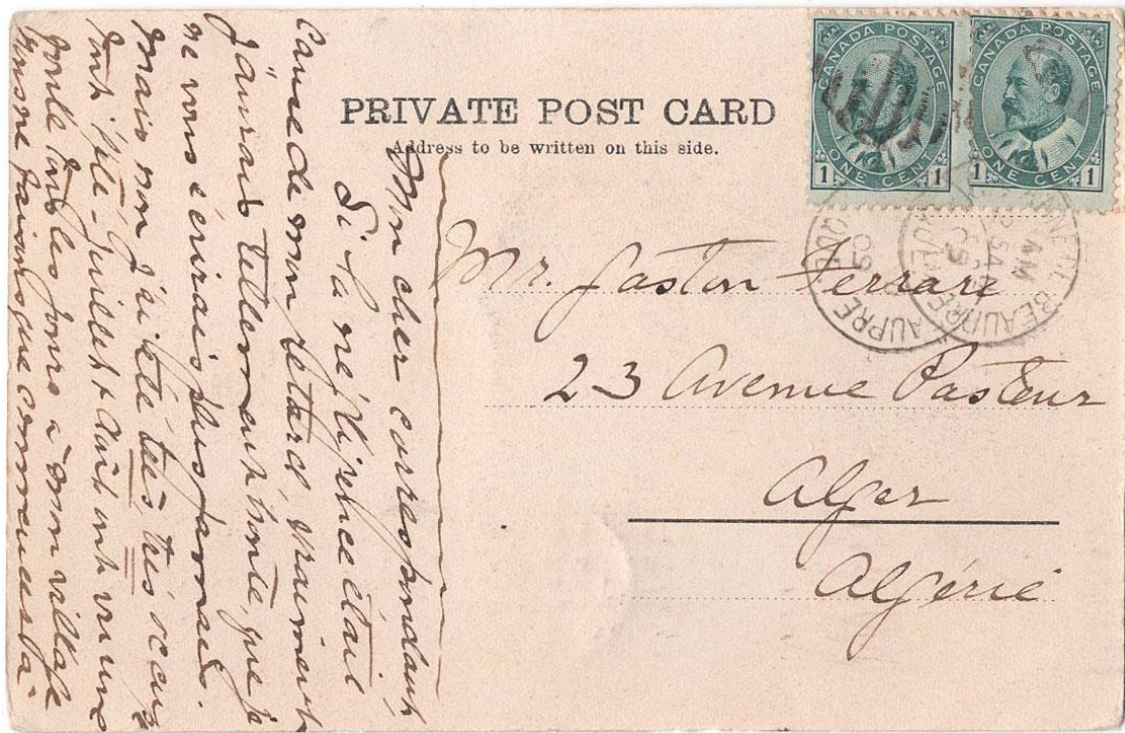 PRIVATE POST CARD
Address to be written on this side.
CANADA POSTAGE
ONE CENT
1 1
CANADA POSTAGE
ONE CENT
1 1
BEAUPRE
AM
09
QUE
AUPRE
QUE
09
Mr. Gaston Ferrare
23 Avenue Pasteur
Alger
Algérie
Mon cher correspondant,
Si la négligence était
cause de mon retard, vraiment
j'aurais tellement honte, que je
ne vous écrirais plus jamais.
mais non j'ai été très très
tout l'été - Juillet & Août ont vu une
foule tous les jours à mon village